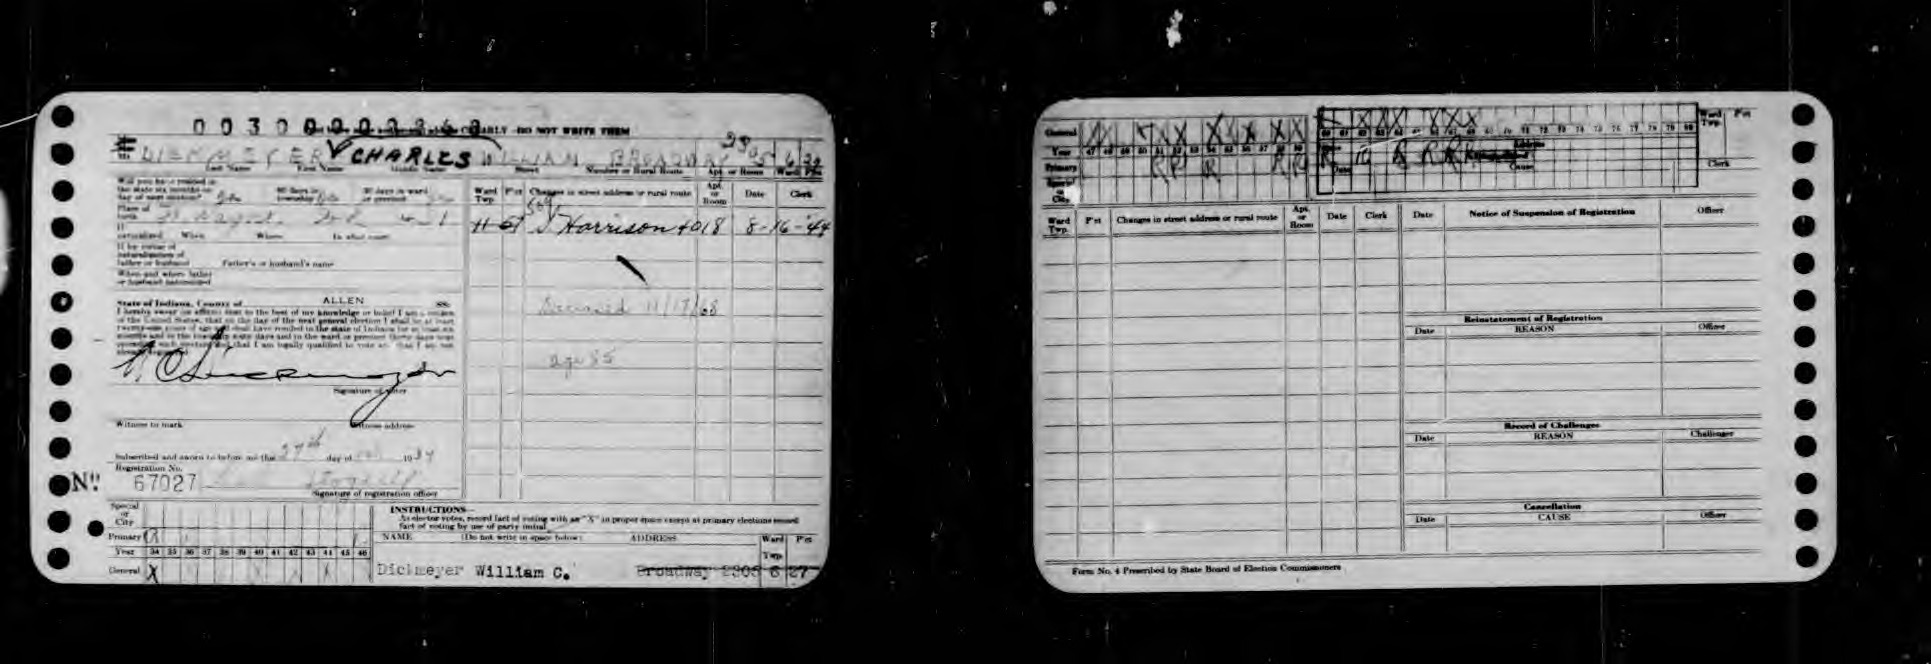 CLEARLY - DO NOT WRITE THEM
DICKMEYER CHARLES WILLIAM BROADWAY 2305 6 27
Last Name First Name Middle Name Street Number or Rural Route Apt. or Room Ward Pct
Will you have resided in
the state six months on
day of next election? 60 days in
township 30 days in ward
or precinct
Place of
birth
If
naturalized When Where In what court
If by virtue of
naturalization of
father or husband Father's or husband's name
When and where father
or husband naturalized
State of Indiana, County of ALLEN SS:
I hereby swear (or affirm) that to the best of my knowledge or belief I am a citizen
of the United States, that on the day of the next general election I shall be at least
twenty-one years of age and shall have resided in the state of Indiana for at least six
months and in the township sixty days and in the ward or precinct thirty days next
that I am legally qualified to vote
W C Dickmeyer
Signature of voter
Witness to mark Witness address
Subscribed and sworn to before me this 27th day of 1934
Registration No.
No. 67027
Signature of registration officer
Ward
Twp. P'ct Changes in street address or rural route Apt.
or
Room Date Clerk
Harrison 4018 8-16-44
Deceased 11/17/68
age 85
Special
or
City
Primary R
Year 34 35 36 37 38 39 40 41 42 43 44 45 46
General X
INSTRUCTIONS—
As elector votes, record fact of voting with an "X" in proper space except at primary elections record
fact of voting by use of party initial.
NAME (Do not write in space below) ADDRESS Ward
Twp. P'ct
Dickmeyer William C. Broadway 2305 6 27
General
Year 47 48 49 50 51 52 53 54 55 56 57 58 59
Primary R R R R R
Special
or
City
Ward
Twp. P'ct
Clerk
Ward
Twp. P'ct Changes in street address or rural route Apt.
or
Room Date Clerk
Date Notice of Suspension of Registration Officer
Reinstatement of Registration
Date REASON Officer
Record of Challenges
Date REASON Challenger
Cancellation
Date CAUSE Officer
Form No. 4 Prescribed by State Board of Election Commissioners